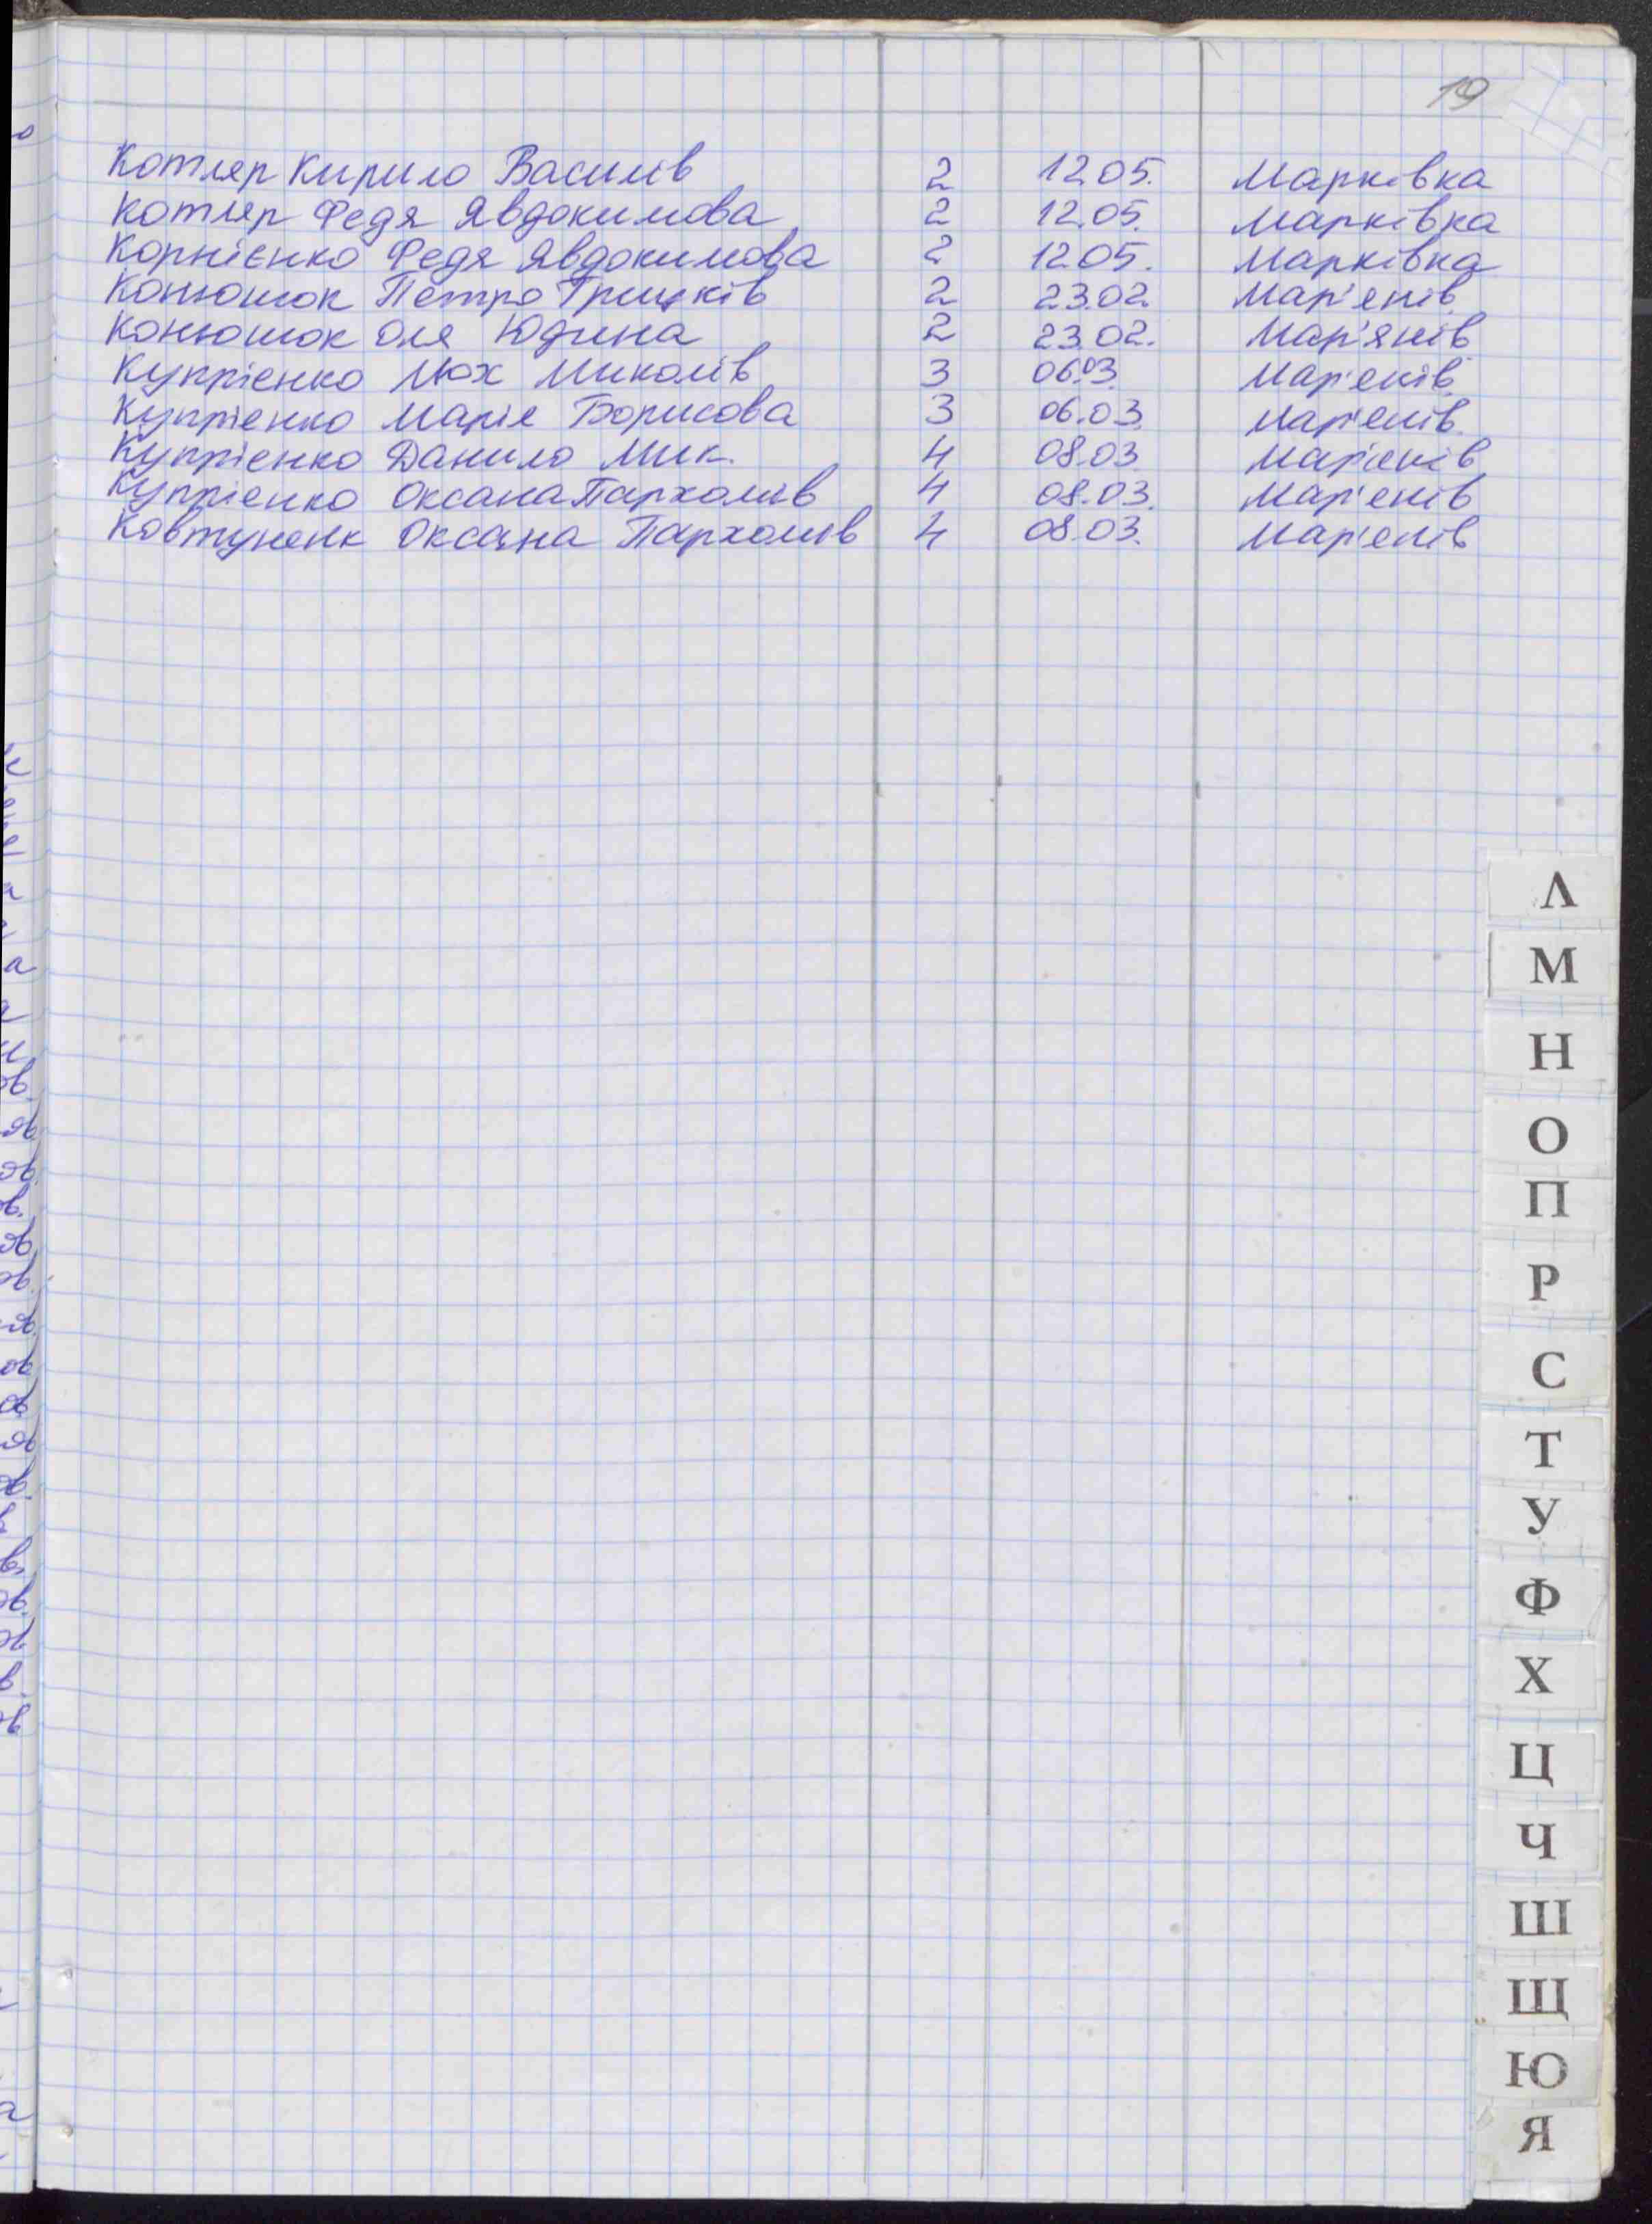 19
Котляр Кирило Василів 2 12.05. Марківка
Котляр Федя Явдокимова 2 12.05. Марківка
Корнієнко Федя Явдокимова 2 12.05. Марківка
Конюшок Петро Грицьків 2 23.02. Мар'янів
Конюшок Оля Юдина 2 23.02. Мар'янів
Купрієнко Мох Миколів 3 06.03. Мар'янів
Купрієнко Марія Борисова 3 06.03. Мар'янів
Купрієнко Данило Мик. 4 08.03 Мар'янів
Купрієнко Оксана Пархомів 4 08.03. Мар'янів
Ковтуненк Оксана Пархомів 4 08.03. Мар'янів
Л
М
Н
О
П
Р
С
Т
У
Ф
Х
Ц
Ч
Ш
Щ
Ю
Я